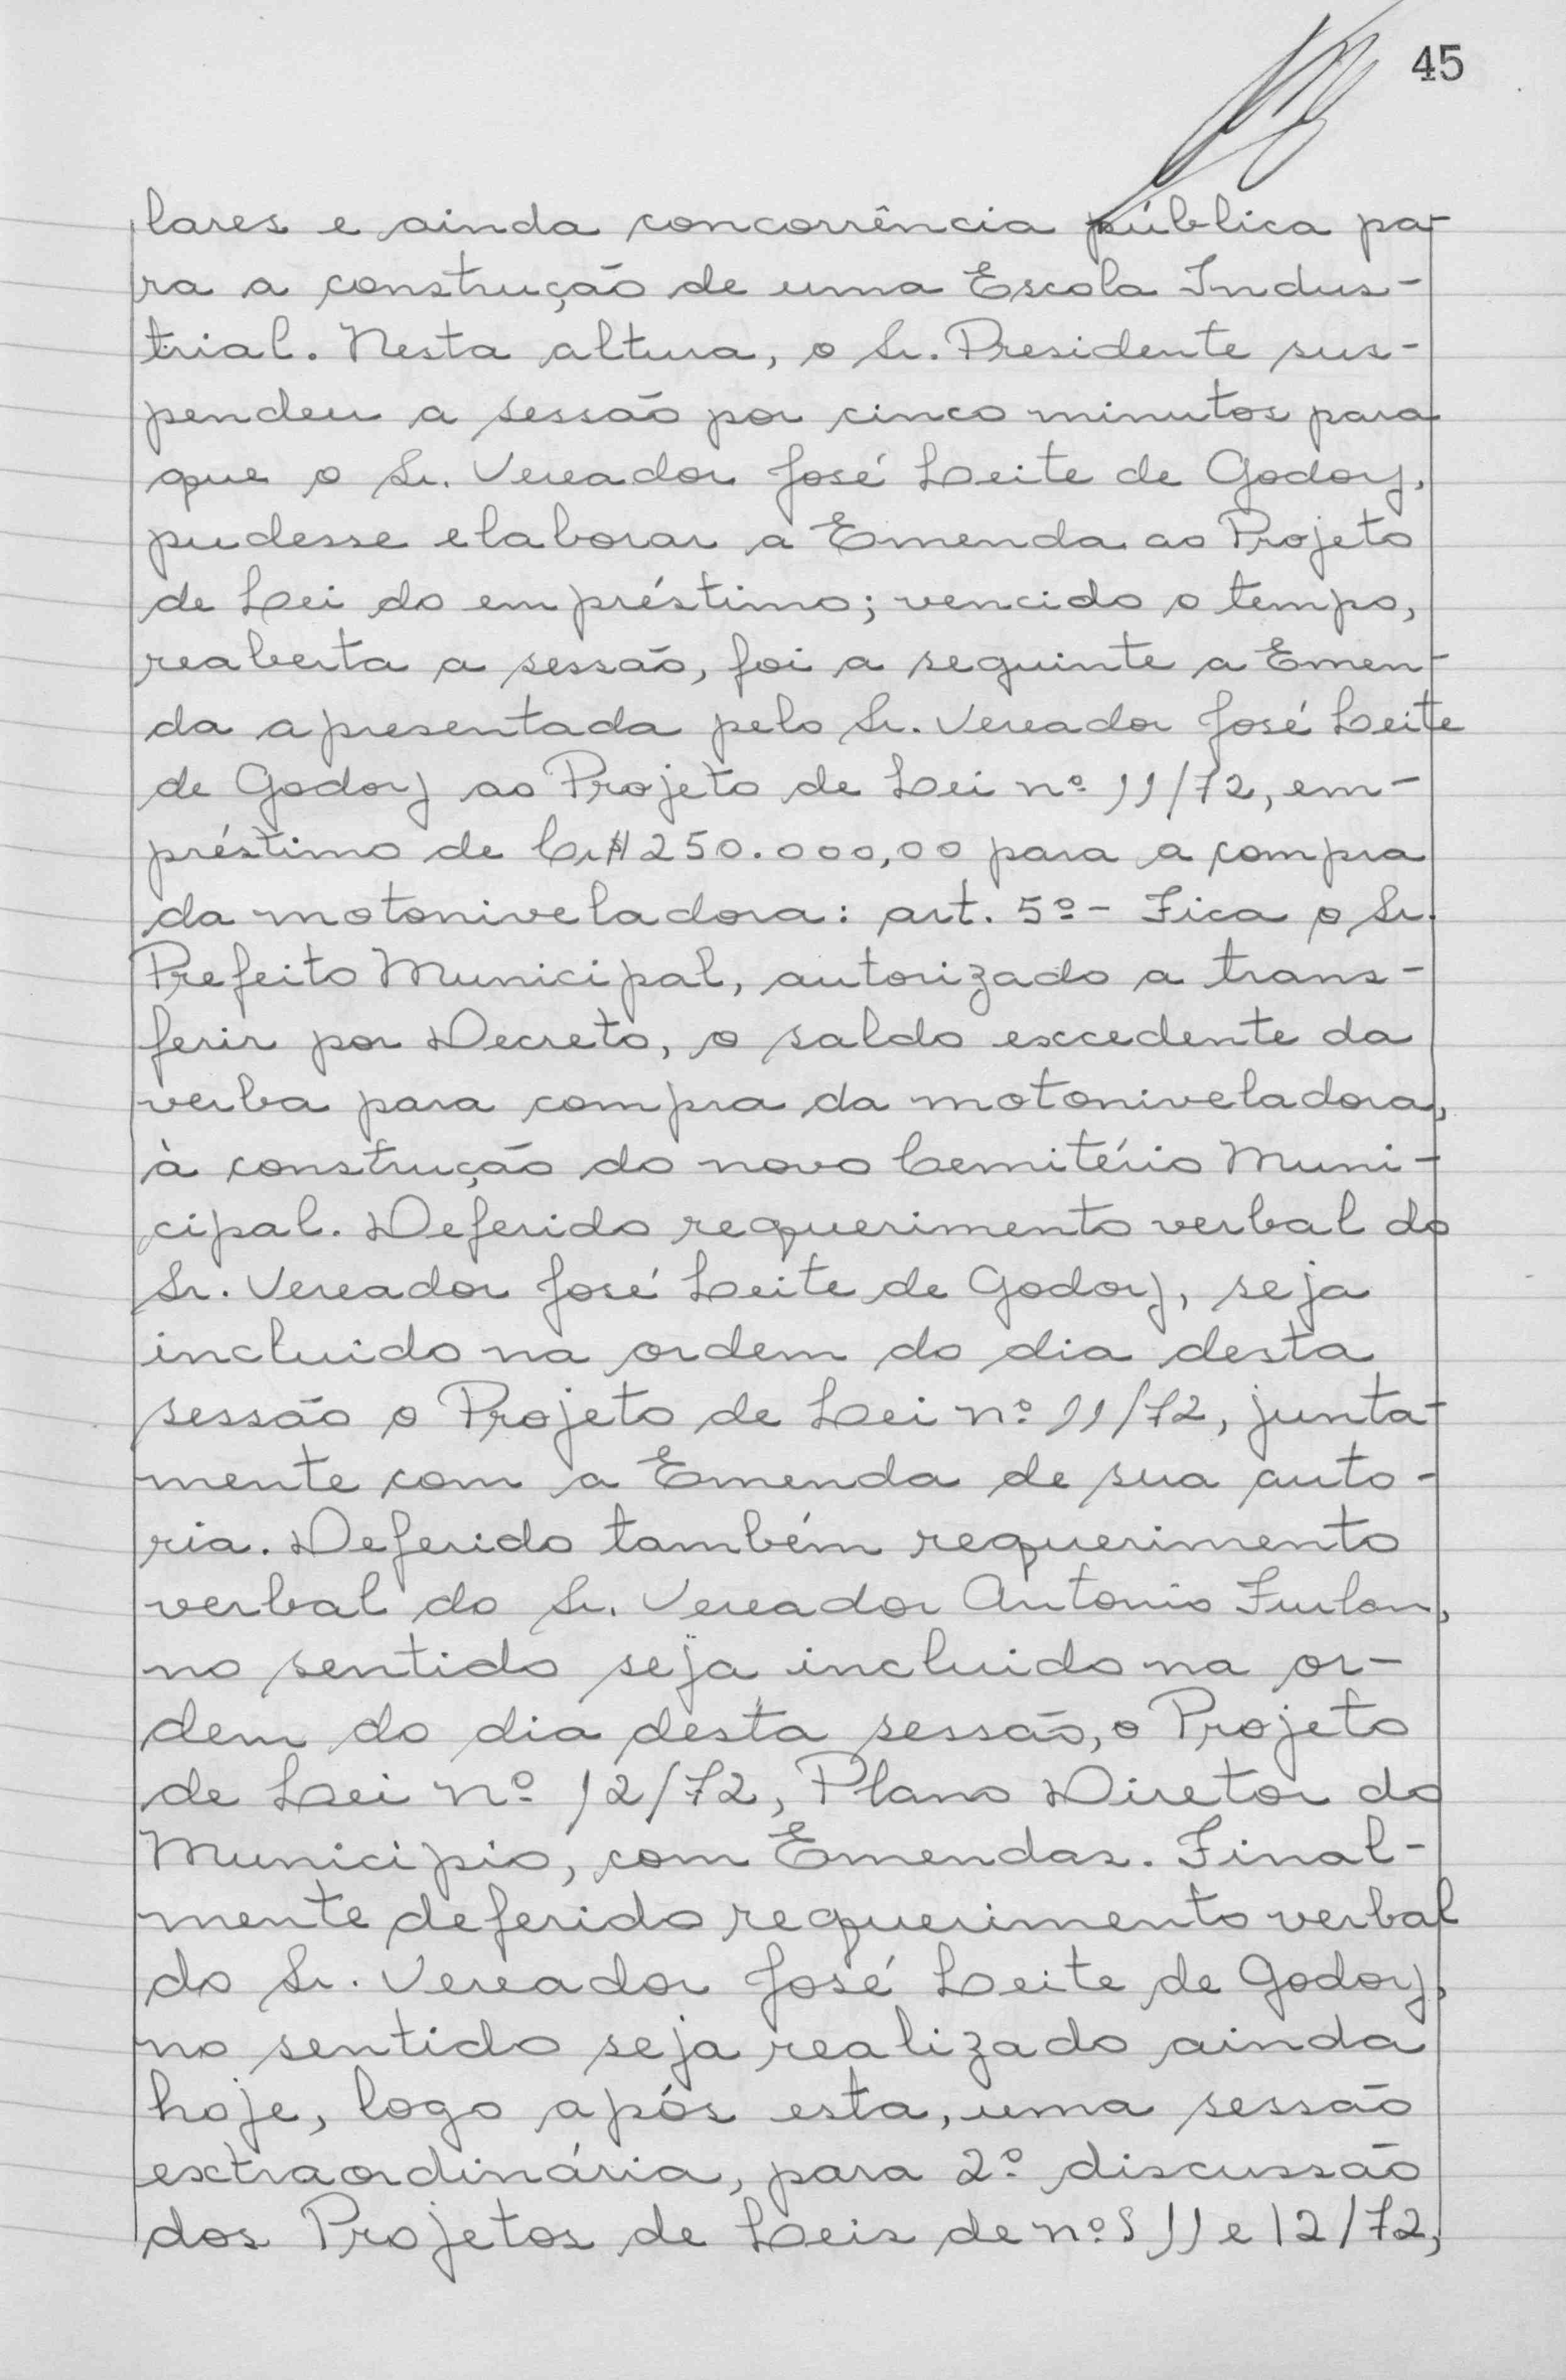 45
lares e ainda concorrência pública pa-
ra a construção de uma Escola Indus-
trial. Nesta altura, o Sr. Presidente sus-
pendeu a sessão por cinco minutos para
que o Sr. Vereador José Leite de Godoy,
pudesse elaborar a Emenda ao Projeto
de Lei do empréstimo; vencido o tempo,
reaberta a sessão, foi a seguinte a Emen-
da apresentada pelo Sr. Vereador José Leite
de Godoy ao Projeto de Lei nº 11/72, em-
préstimo de Cr$ 250.000,00 para a compra
da motoniveladora: art. 5º - Fica o Sr.
Prefeito Municipal, autorizado a trans-
ferir por Decreto, o saldo excedente da
verba para compra da motoniveladora,
à construção do novo Cemitério Muni-
cipal. Deferido requerimento verbal do
Sr. Vereador José Leite de Godoy, seja
incluido na ordem do dia desta
sessão o Projeto de Lei nº 11/72, junta-
mente com a Emenda de sua auto-
ria. Deferido também requerimento
verbal do Sr. Vereador Antonio Furlan,
no sentido seja incluido na or-
dem do dia desta sessão, o Projeto
de Lei nº 12/72, Plano Diretor do
Municipio, com Emendas. Final-
mente deferido requerimento verbal
do Sr. Vereador José Leite de Godoy,
no sentido seja realizado ainda
hoje, logo após esta, uma sessão
extraordinária, para 2º discussão
dos Projetos de Leis de nºs 11 e 12/72,